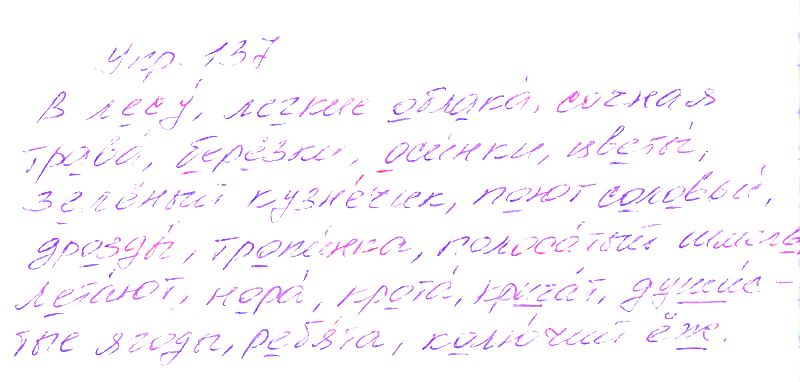 Упр. 137
В лесу́, легкие облака́, сочная
трава́, берёзки, оси́нки, цветы́,
зелёный кузне́чик, поют соловьи́,
дрозды́, тропи́нка, полоса́тый шмель,
лета́ют, нора́, крота́, крича́т, души́с-
тые ягоды, ребя́та, колю́чий ёж.